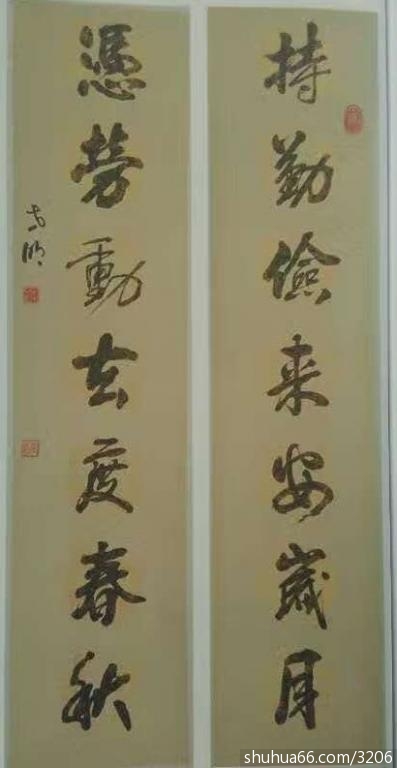 持勤儉来安歲月
憑勞動去度春秋
shuhua66.com/3206